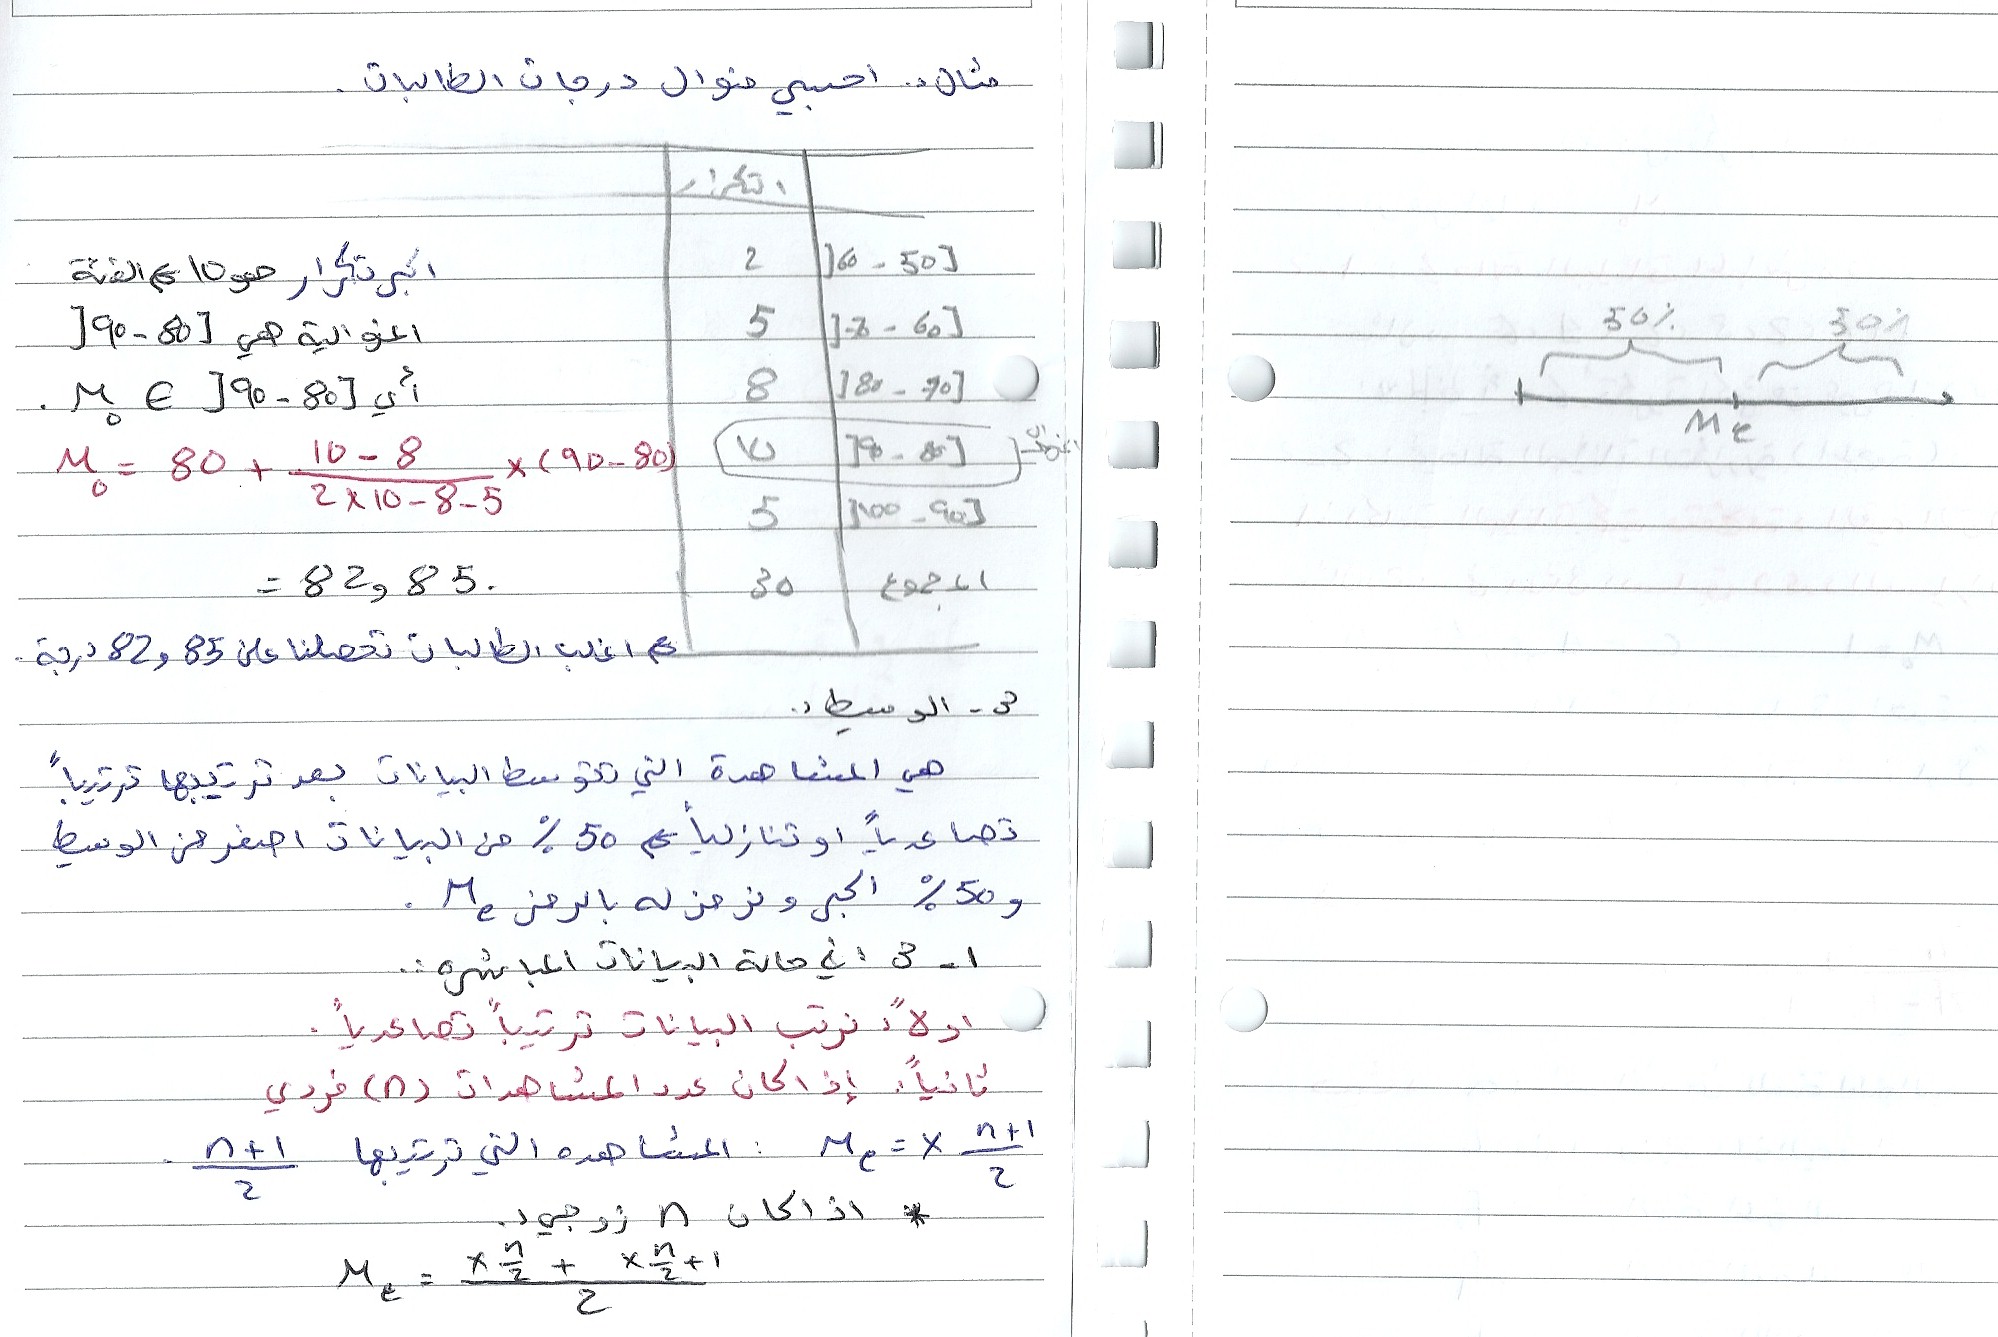 مثال: احسبي منوال درجات الطالبات.
التكرار
[50 - 60[ 2
[60 - 70[ 5
[70 - 80[ 8
[80 - 90[ 10 المنوالية
[90 - 100[ 5
المجموع 30
اكبر تكرار هو 10 ⇐ الفئة
المنوالية هي [80 - 90[
أي M₀ ∈ [80 - 90[ .
M₀ = 80 + (10 - 8)/(2×10 - 8 - 5) × (90 - 80)
= 82,85.
⇐ اغلب الطالبات تحصلنا على 82,85 درجة.
3 - الوسيط:
هي المشاهدة التي تتوسط البيانات بعد ترتيبها ترتيباً
تصاعدياً او تنازلياً ⇐ 50% من البيانات اصغر من الوسيط
و 50% اكبر ونرمز له بالرمز Me .
1 - 3 : في حالة البيانات المباشره :
اولاً: نرتب البيانات ترتيباً تصاعدياً.
ثانياً: إذا كان عدد المشاهدات (n) فردي
Me = x (n+1)/2 : المشاهده التي ترتيبها (n+1)/2 .
* اذا كان n زوجي:
Me = (x n/2 + x n/2 + 1)/2
50% 50%
Me